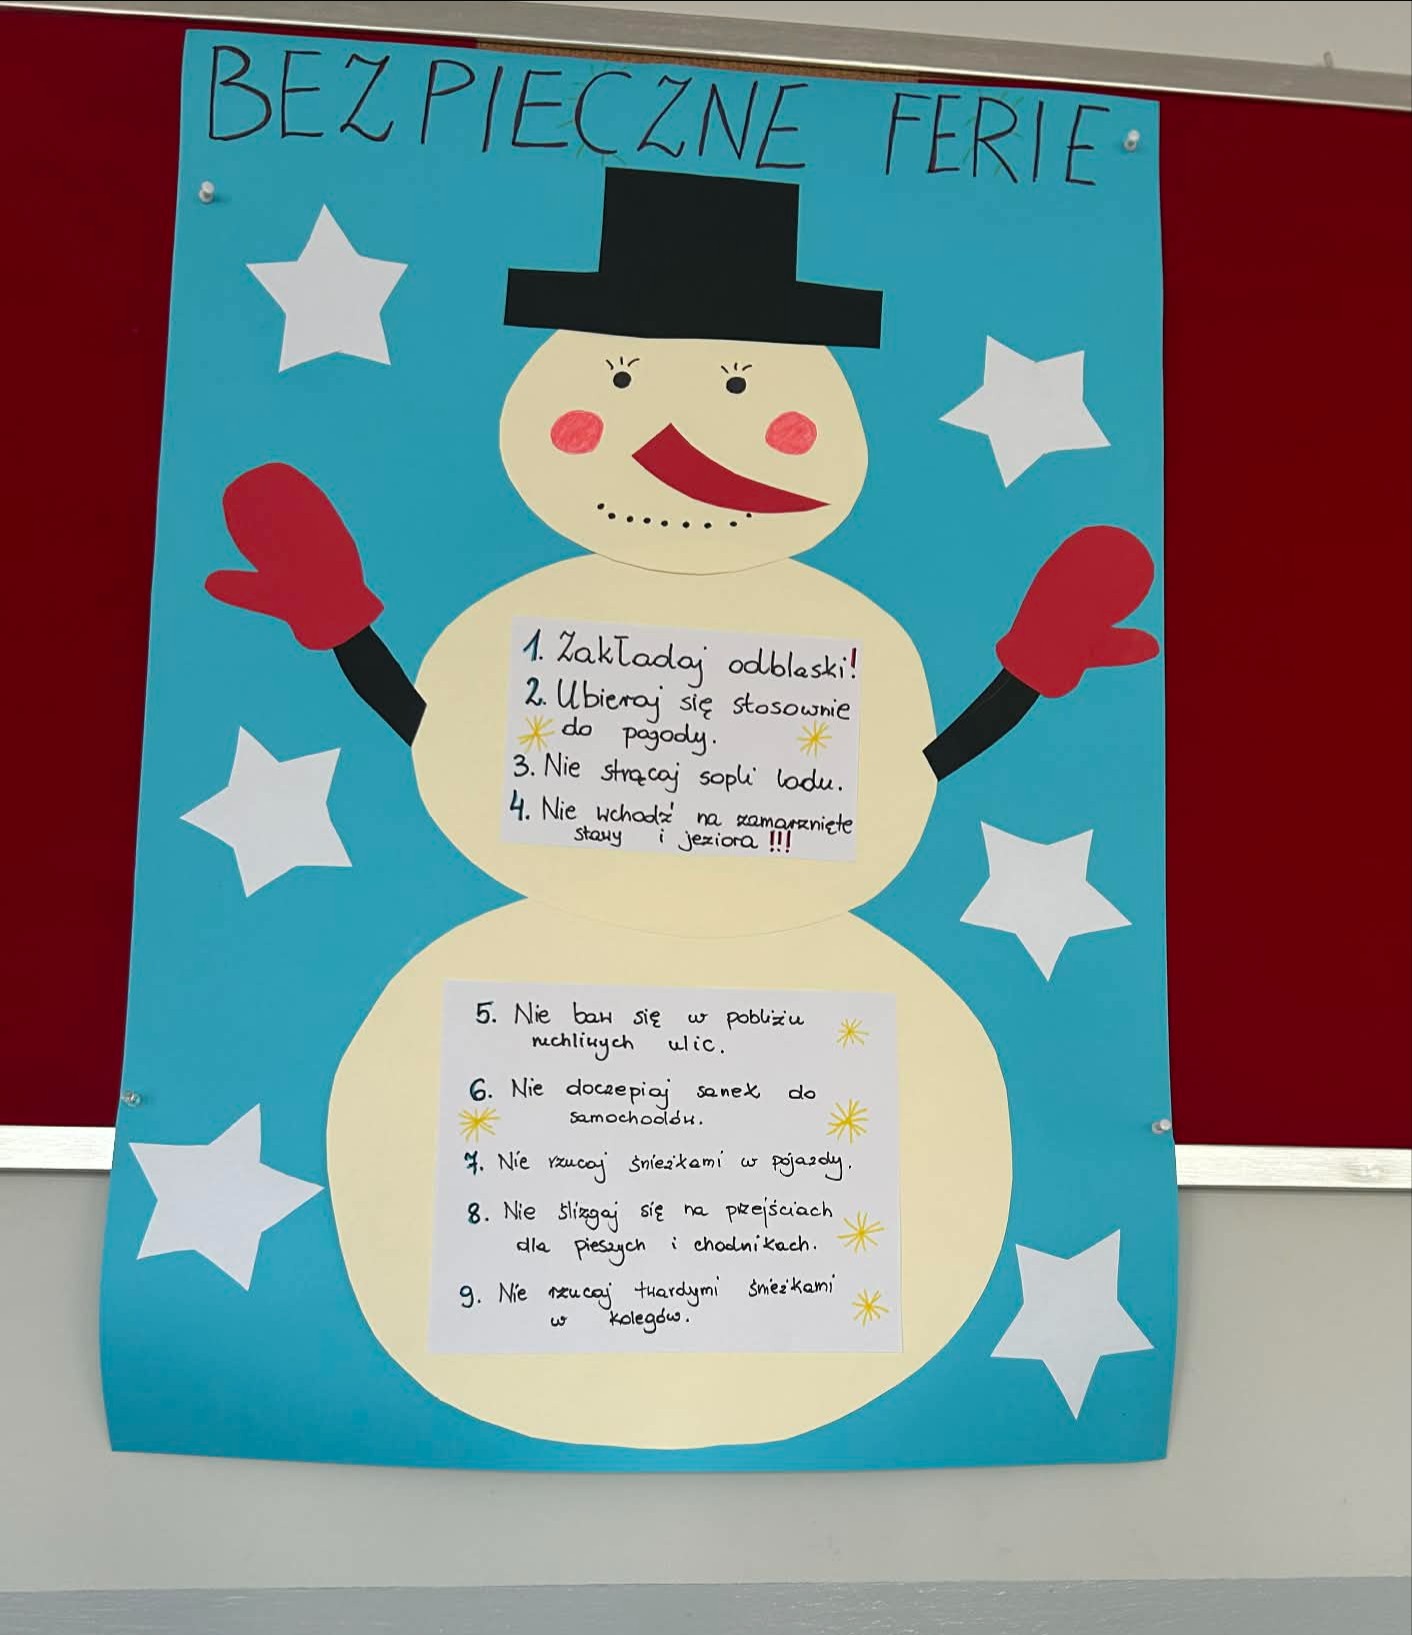 BEZPIECZNE FERIE
1. Zakładaj odblaski!
2. Ubieraj się stosownie
do pogody.
3. Nie strącaj sopli lodu.
4. Nie wchodź na zamarznięte
stawy i jeziora!!!
5. Nie baw się w pobliżu
ruchliwych ulic.
6. Nie doczepiaj sanek do
samochodów.
7. Nie rzucaj śnieżkami w pojazdy.
8. Nie ślizgaj się na przejściach
dla pieszych i chodnikach.
9. Nie rzucaj twardymi śnieżkami
w kolegów.